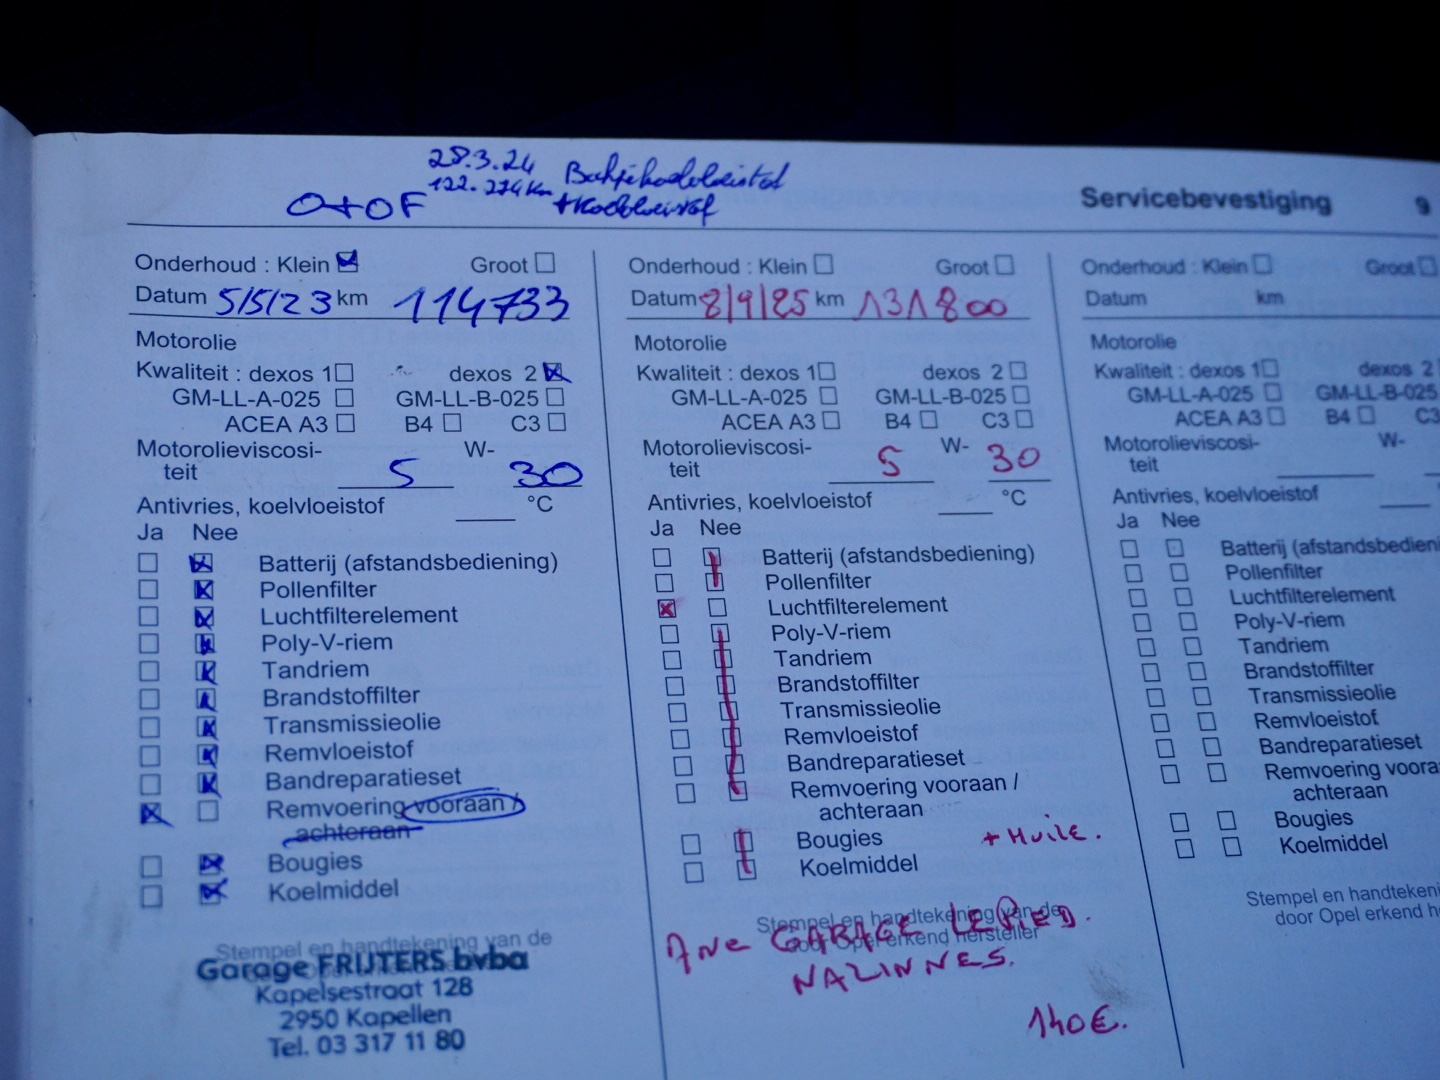 28.3.24
122.274 km
O+OF
Servicebevestiging 9
Onderhoud : Klein Groot
Datum 5/5/23 km 114733
Motorolie
Kwaliteit : dexos 1 dexos 2
GM-LL-A-025 GM-LL-B-025
ACEA A3 B4 C3
Motorolieviscosi-
teit 5 W- 30
Antivries, koelvloeistof °C
Ja Nee
Batterij (afstandsbediening)
Pollenfilter
Luchtfilterelement
Poly-V-riem
Tandriem
Brandstoffilter
Transmissieolie
Remvloeistof
Bandreparatieset
Remvoering vooraan /
achteraan
Bougies
Koelmiddel
Stempel en handtekening van de
Garage FRIJTERS bvba
Kapelsestraat 128
2950 Kapellen
Tel. 03 317 11 80
Onderhoud : Klein Groot
Datum 8/9/25 km 131800
Motorolie
Kwaliteit : dexos 1 dexos 2
GM-LL-A-025 GM-LL-B-025
ACEA A3 B4 C3
Motorolieviscosi-
teit 5 W- 30
Antivries, koelvloeistof °C
Ja Nee
Batterij (afstandsbediening)
Pollenfilter
Luchtfilterelement
Poly-V-riem
Tandriem
Brandstoffilter
Transmissieolie
Remvloeistof
Bandreparatieset
Remvoering vooraan /
achteraan
Bougies + Huile.
Koelmiddel
Stempel en handtekening van de
door Opel erkend hersteller
GARAGE LEPIED.
NALINNES.
140€.
Onderhoud : Klein Groot
Datum km
Motorolie
Kwaliteit : dexos 1 dexos 2
GM-LL-A-025 GM-LL-B-025
ACEA A3 B4
Motorolieviscosi-
teit W-
Antivries, koelvloeistof
Ja Nee
Batterij (afstandsbedieni
Pollenfilter
Luchtfilterelement
Poly-V-riem
Tandriem
Brandstoffilter
Transmissieolie
Remvloeistof
Bandreparatieset
Remvoering voora
achteraan
Bougies
Koelmiddel
Stempel en handtekeni
door Opel erkend he